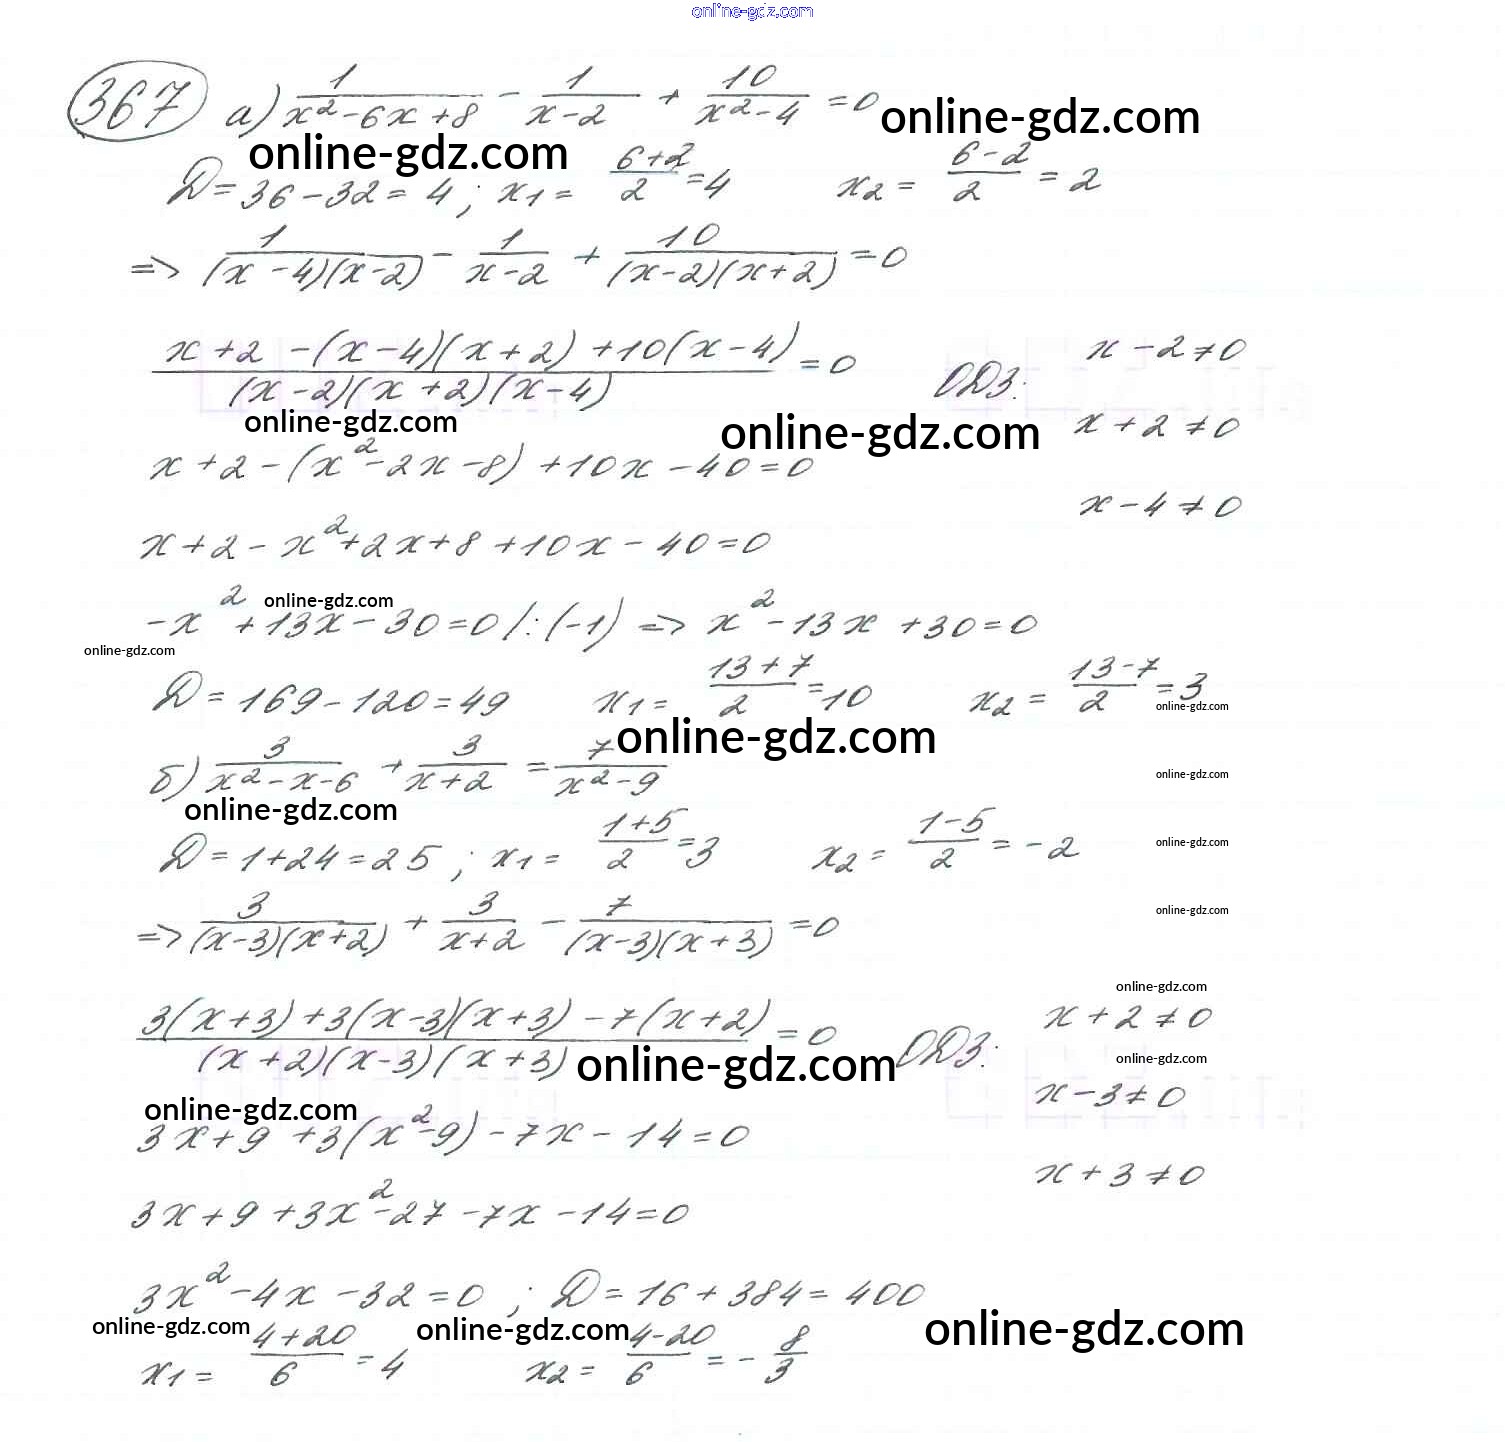 online-gdz.com
367 а) 1/(x²-6x+8) - 1/(x-2) + 10/(x²-4) = 0 online-gdz.com
online-gdz.com
D = 36 - 32 = 4; x1 = (6+2)/2 = 4 x2 = (6-2)/2 = 2
=> 1/((x-4)(x-2)) - 1/(x-2) + 10/((x-2)(x+2)) = 0
(x+2-(x-4)(x+2)+10(x-4))/((x-2)(x+2)(x-4)) = 0 ОДЗ: x-2≠0
online-gdz.com online-gdz.com x+2≠0
x+2-(x²-2x-8)+10x-40=0
x-4≠0
x+2-x²+2x+8+10x-40=0
online-gdz.com
-x²+13x-30=0 /:(-1) => x²-13x+30=0
online-gdz.com
D = 169-120 = 49 x1 = (13+7)/2 = 10 x2 = (13-7)/2 = 3
online-gdz.com
online-gdz.com
б) 3/(x²-x-6) + 3/(x+2) = 7/(x²-9)
online-gdz.com
online-gdz.com
D = 1+24 = 25; x1 = (1+5)/2 = 3 x2 = (1-5)/2 = -2
online-gdz.com
online-gdz.com
=> 3/((x-3)(x+2)) + 3/(x+2) - 7/((x-3)(x+3)) = 0
online-gdz.com
(3(x+3)+3(x-3)(x+3)-7(x+2))/((x+2)(x-3)(x+3)) = 0 ОДЗ: x+2≠0
online-gdz.com online-gdz.com
x-3≠0
online-gdz.com
3x+9+3(x²-9)-7x-14=0
x+3≠0
3x+9+3x²-27-7x-14=0
3x²-4x-32=0; D = 16+384 = 400
online-gdz.com online-gdz.com online-gdz.com
x1 = (4+20)/6 = 4 x2 = (4-20)/6 = -8/3